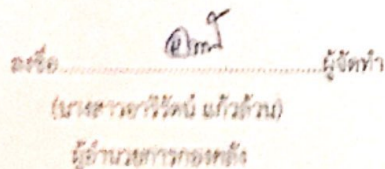 ลงชื่อ..............................ผู้จัดทำ
(นางสาวอาริรัตน์ แก้วล้วน)
ผู้อำนวยการกองคลัง